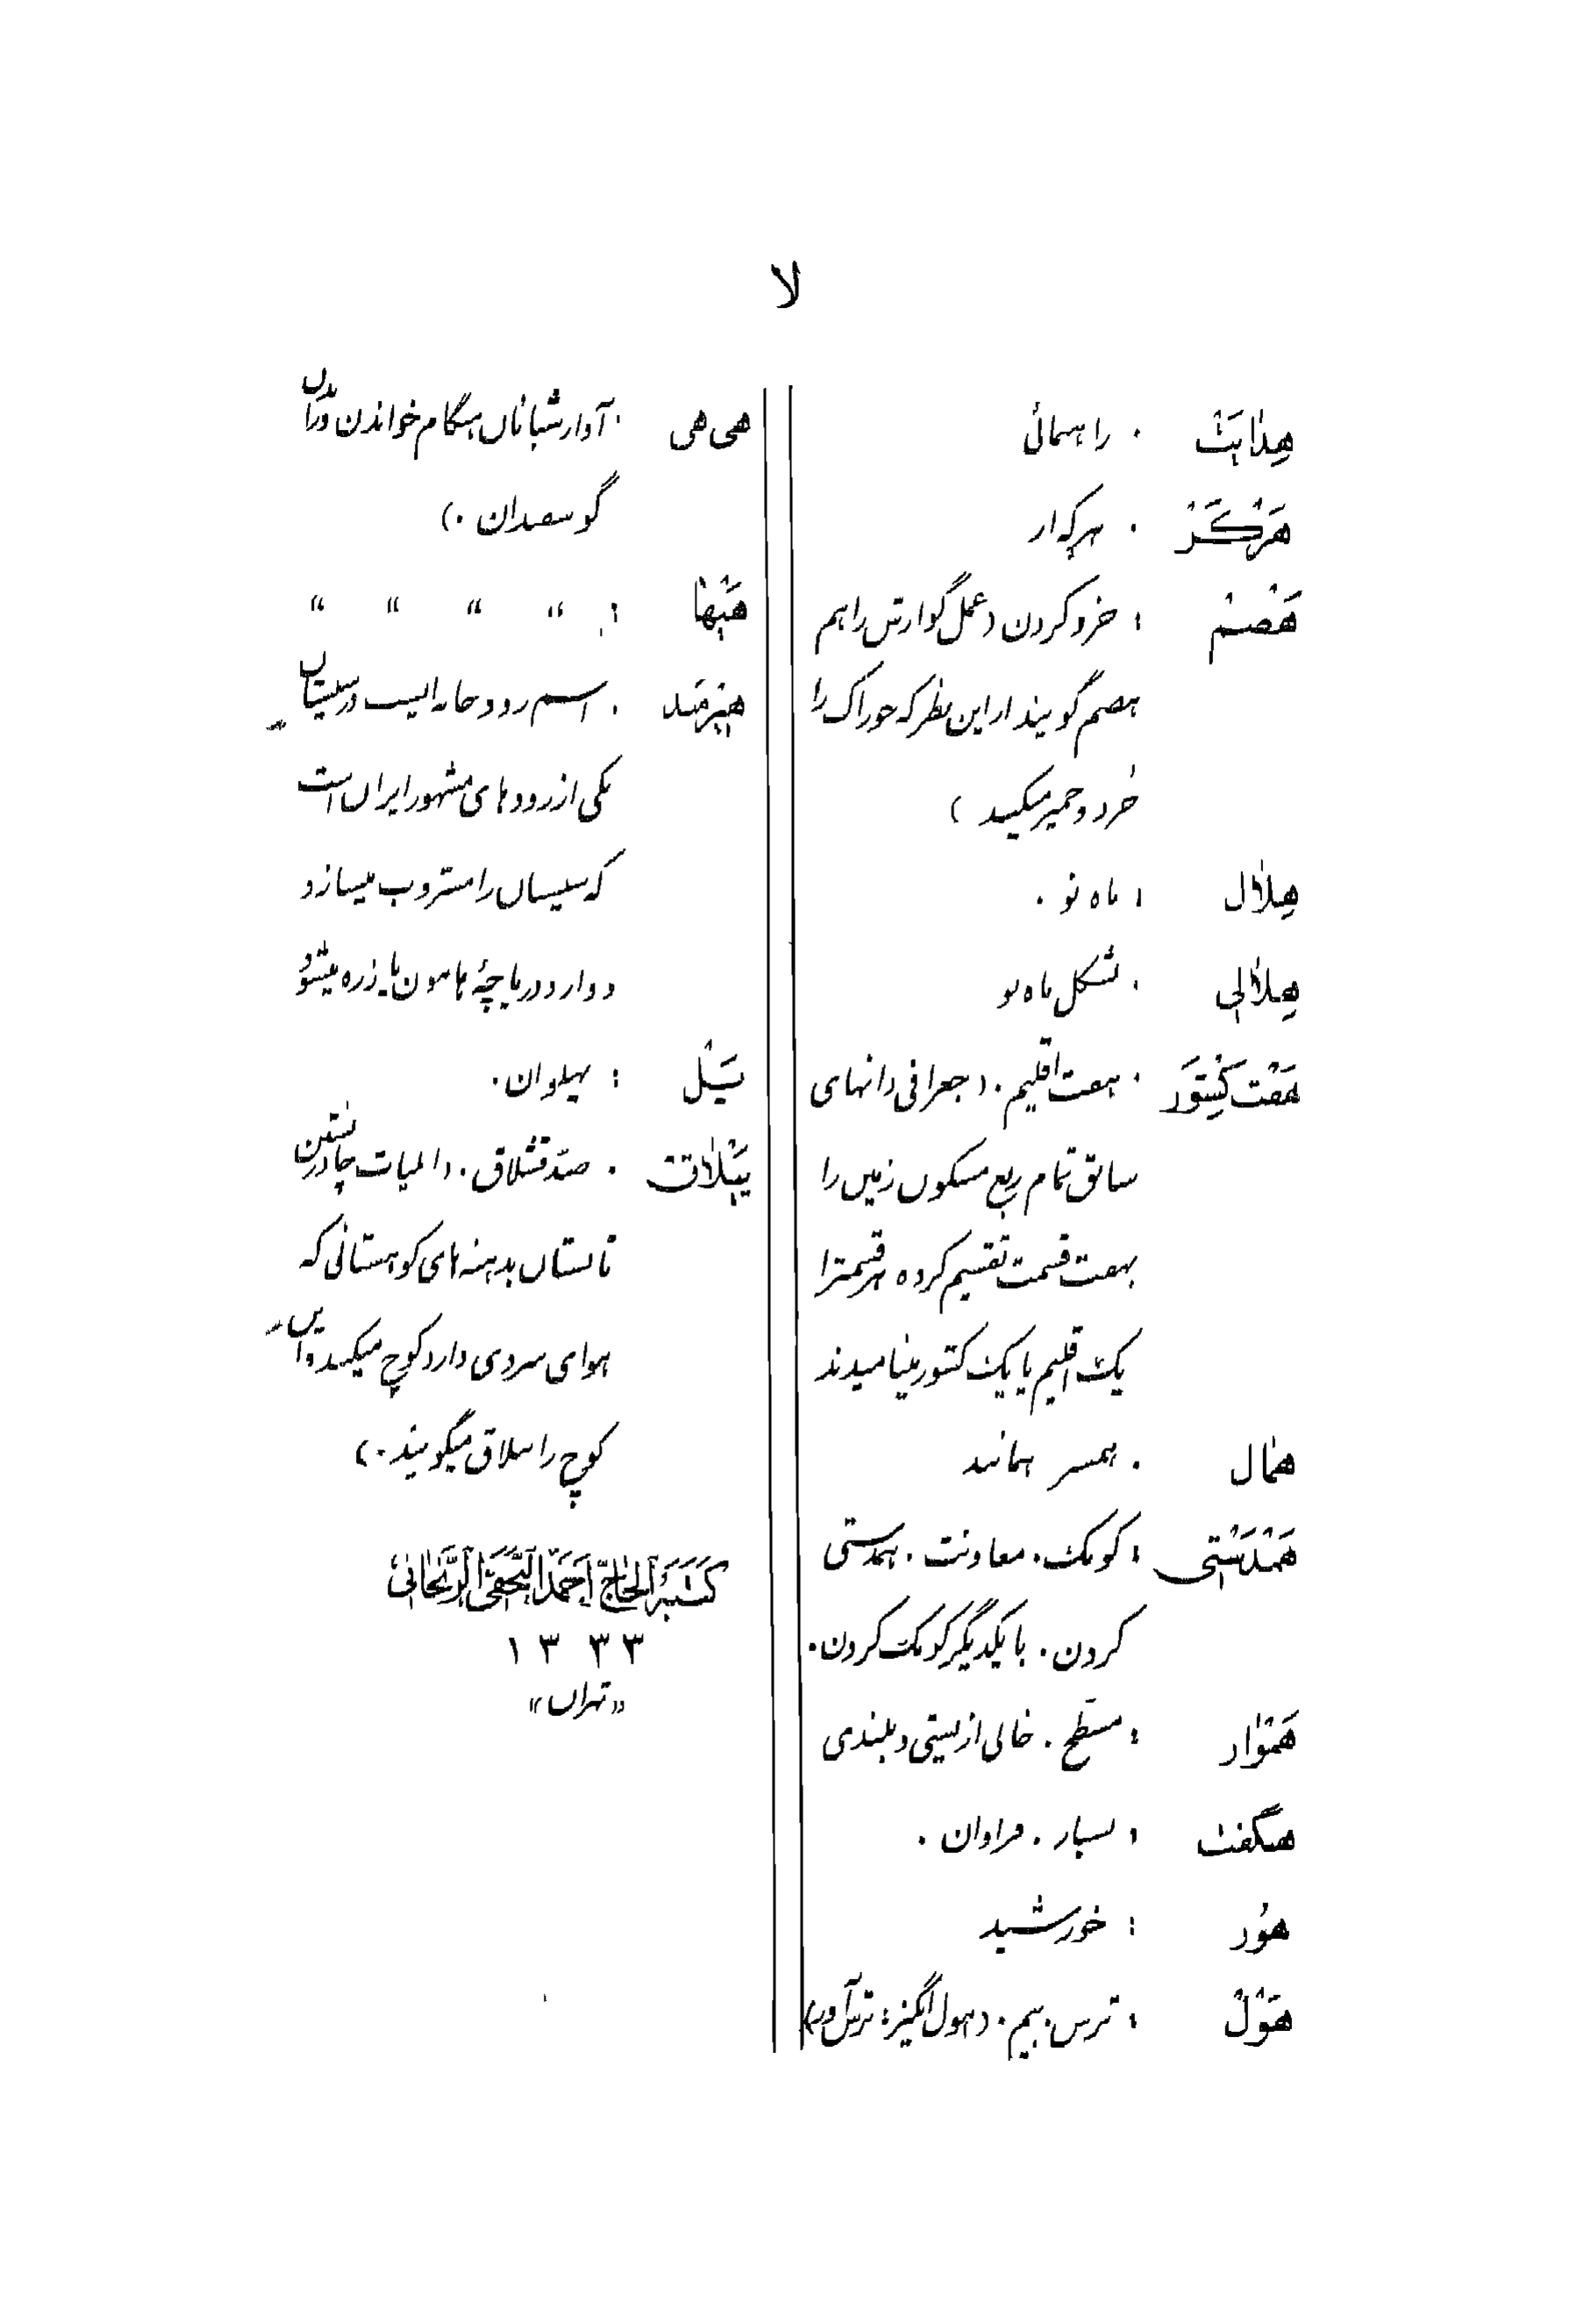 لا
هِدایَتْ : راهنمائی
هَرْگَزْ : هرکه از
هَضْمْ : خرد کردن (عمل گوارش را هم
هضم گویند از این نظر که خوراک را
خرد و خمیر میکند)
هِلال : ماه نو .
هِلالی : بشکل ماه نو
هَفْت کِشْوَر : هفت اقلیم . (جغرافی دانهای
سابق تمام ربع مسکون زمین را
بهفت قسمت تقسیم کرده هر قسمترا
یک اقلیم یا یک کشور مینامیدند
هَمال : همسر همانند
هَمْدَسْتی : کومک . معاونت . همدستی
کردن . با یکدیگر کومک کردن .
هَمْوار : مسطّح . خالی از پستی و بلندی
هنگفت : بسیار . فراوان .
هُور : خورشید
هَوْلْ : ترس . بیم . (هول انگیز : ترس آور)
هی هی : آواز شبانان هنگام خواندن و راندن
گوسفندان .)
هَیْها : " " " "
هیرمند : اسم رودخانه ایست در سیستان
یکی از رودهای مشهور ایران است
که سیستان را مشروب میسازد
و وارد دریاچهٔ هامون یا زره میشود
یَلْ : پهلوان .
ییْلاق : ضدّ قشلاق . (ایلیات چادرنشین
تابستان بدهنه های کوهستانی که
هوای سردی دارد کوچ میکنند و این
کوچ را ییلاق میگویند .)
کَتَبَهُ الحاجّ اَحمَدُ النَّجَفیُّ الزَّنجانیُّ
۱۳۳۳
«تهران»